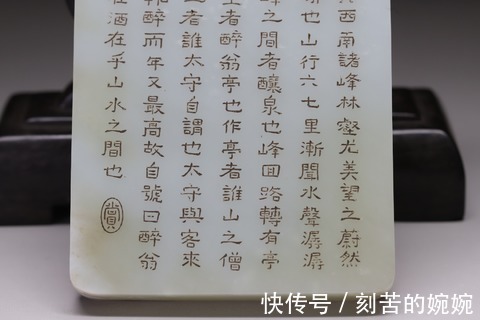 西南諸峰林壑尤美望之蔚然
也山行六七里漸聞水聲潺潺
峰之間者釀泉也峰回路轉有亭
上者醉翁亭也作亭者誰山之僧
之者誰太守自謂也太守與客來
輒醉而年又最高故自號曰醉翁
在酒在乎山水之間也
快传号/刻苦的婉婉